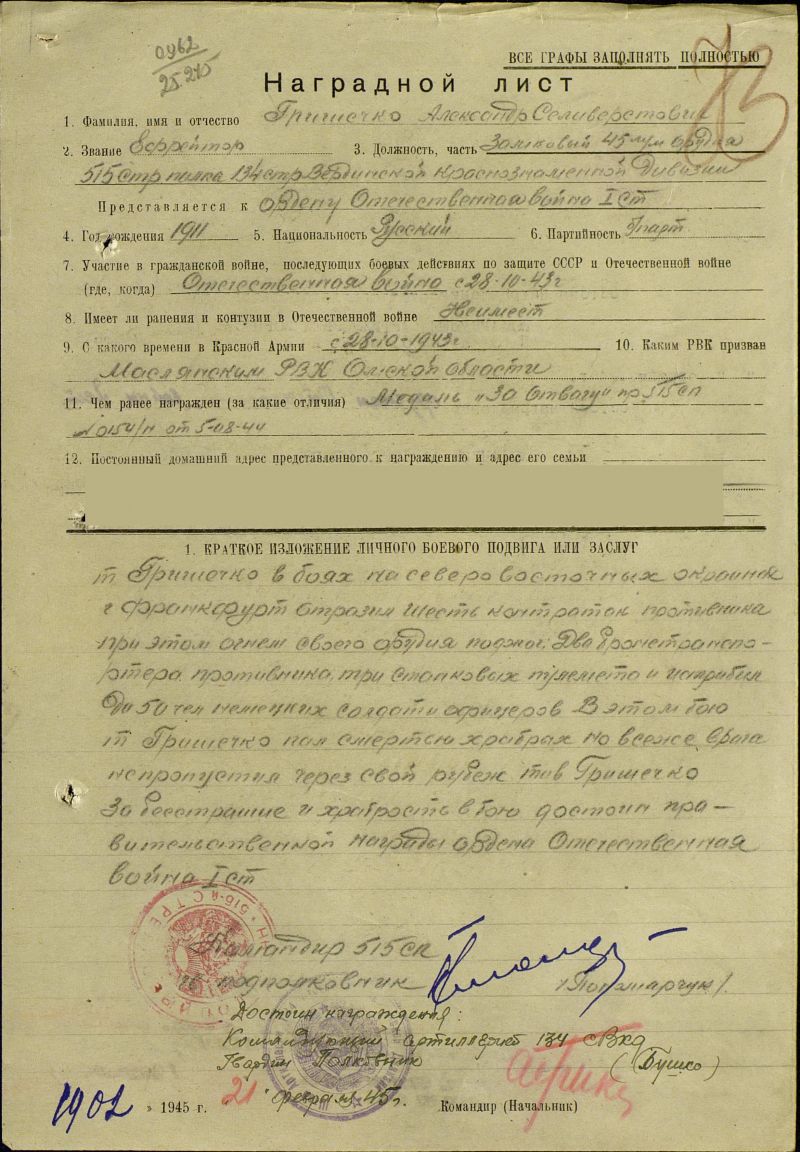 0962
25.2.45
ВСЕ ГРАФЫ ЗАПОЛНЯТЬ ПОЛНОСТЬЮ
Наградной лист
1. Фамилия, имя и отчество Гришечко Александр Селиверстович
2. Звание Ефрейтор 3. Должность, часть Замковый 45 м/м орудия
515 стр полка 134 стр Вердинской Краснознаменной Дивизии
Представляется к ордену Отечественная война I ст
4. Год рождения 1911 5. Национальность Русский 6. Партийность
7. Участие в гражданской войне, последующих боевых действиях по защите СССР и Отечественной войне
(где, когда) Отечественная война с 28-10-43г
8. Имеет ли ранения и контузии в Отечественной войне Неимеет
9. С какого времени в Красной Армии с 28-10-1943г 10. Каким РВК призван
Маслянским РВК Омской области
11. Чем ранее награжден (за какие отличия) Медаль "За Отвагу" пр 515 сп
№ 0154/н от 5-08-44
12. Постоянный домашний адрес представленного к награждению и адрес его семьи
1. КРАТКОЕ ИЗЛОЖЕНИЕ ЛИЧНОГО БОЕВОГО ПОДВИГА ИЛИ ЗАСЛУГ
т Гришечко в боях на северо восточных окраинах
г Франкфурт отразил шесть контратак противника
при этом огнем своего орудия поджог: Два бронетранспо-
ртера противника, три станковых пулемета и истребил
До 50 чел немецких солдат и офицеров В этом бою
т Гришечко пал смертью храбрах но всеже врага
непропустил через свой рубеж тов Гришечко
За бесстрашие и храбрость в бою достоин пра-
вительственной награды ордена Отечественная
война I ст
Командир 515 сп
подполковник (Пономарчук)
Достоин награждения:
Командующий артиллерией 134 сВкд
Гвардии Полковник (Бушко)
21 Февраля 45г.
1902 » 1945 г. Командир (Начальник)